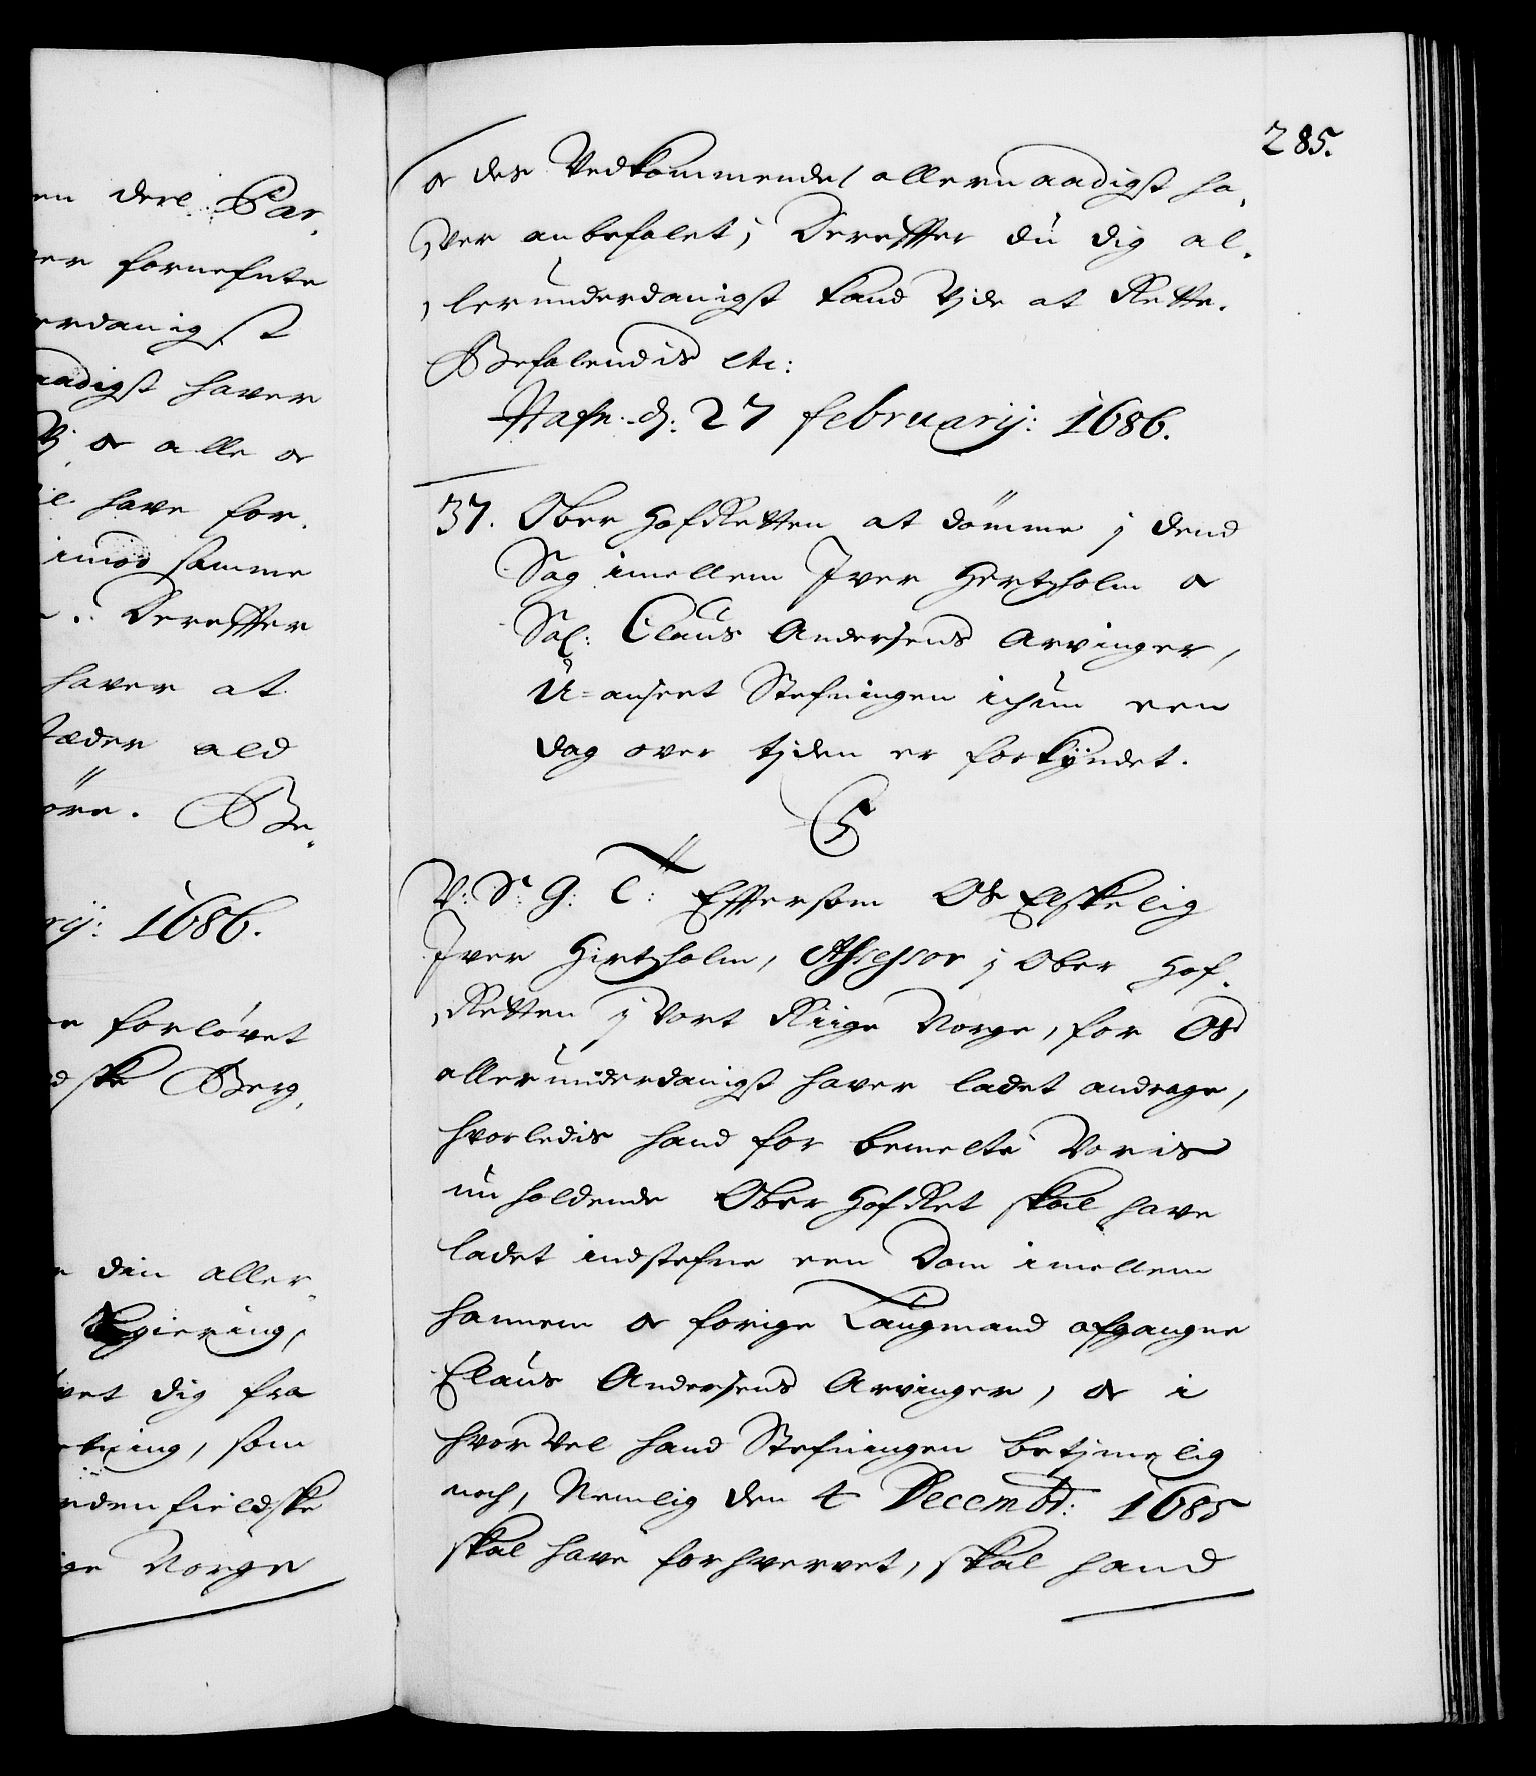 en deel Par-
er fornefnte
erdanigst
aadigst haver
Vj og alle og
il have for-
imod samme
Derefter
haver at
stæder ald
öre. Be-
rij: 1686.
e forlövet
d ske Berg-
din aller-
Regiering,
vet dig fra
etning, som
ndenfieldske
ige Norge
285.
og des Vedkommende allernaadigst ha-
ver anbefalet; Derefter du dig al-
lerunderdanigst kand vide at Rette.
Befalendis etc:
Hafn: d: 27 februarij: 1686.
37. Ober HofRetten at dömme j dend
Sag imellem Iver Hertzholm og
Sal: Claus Andersens Arvinger,
U=anseet Stefningen ichun een
dag over tjden er forkyndet.
C5
V: S: G: T: Eftersom Os Elskelig
Iver Hirtzholm, Assessor j Ober Hof-
Retten j Vort Riige Norge, for Os
allerunderdanigst haver ladet andrage,
hvorledis hand for bemelte Voris
nu holdende Ober HofRet skal have
ladet indstefne een Dom imellem
hannem og forige Laugmand afgangne
Claus Andersens Arvinger, og i
hvor vel hand Stefningen betjmelig
noch, Nemlig den 4 Decembr: 1685
skal have forhvervet, skal hand